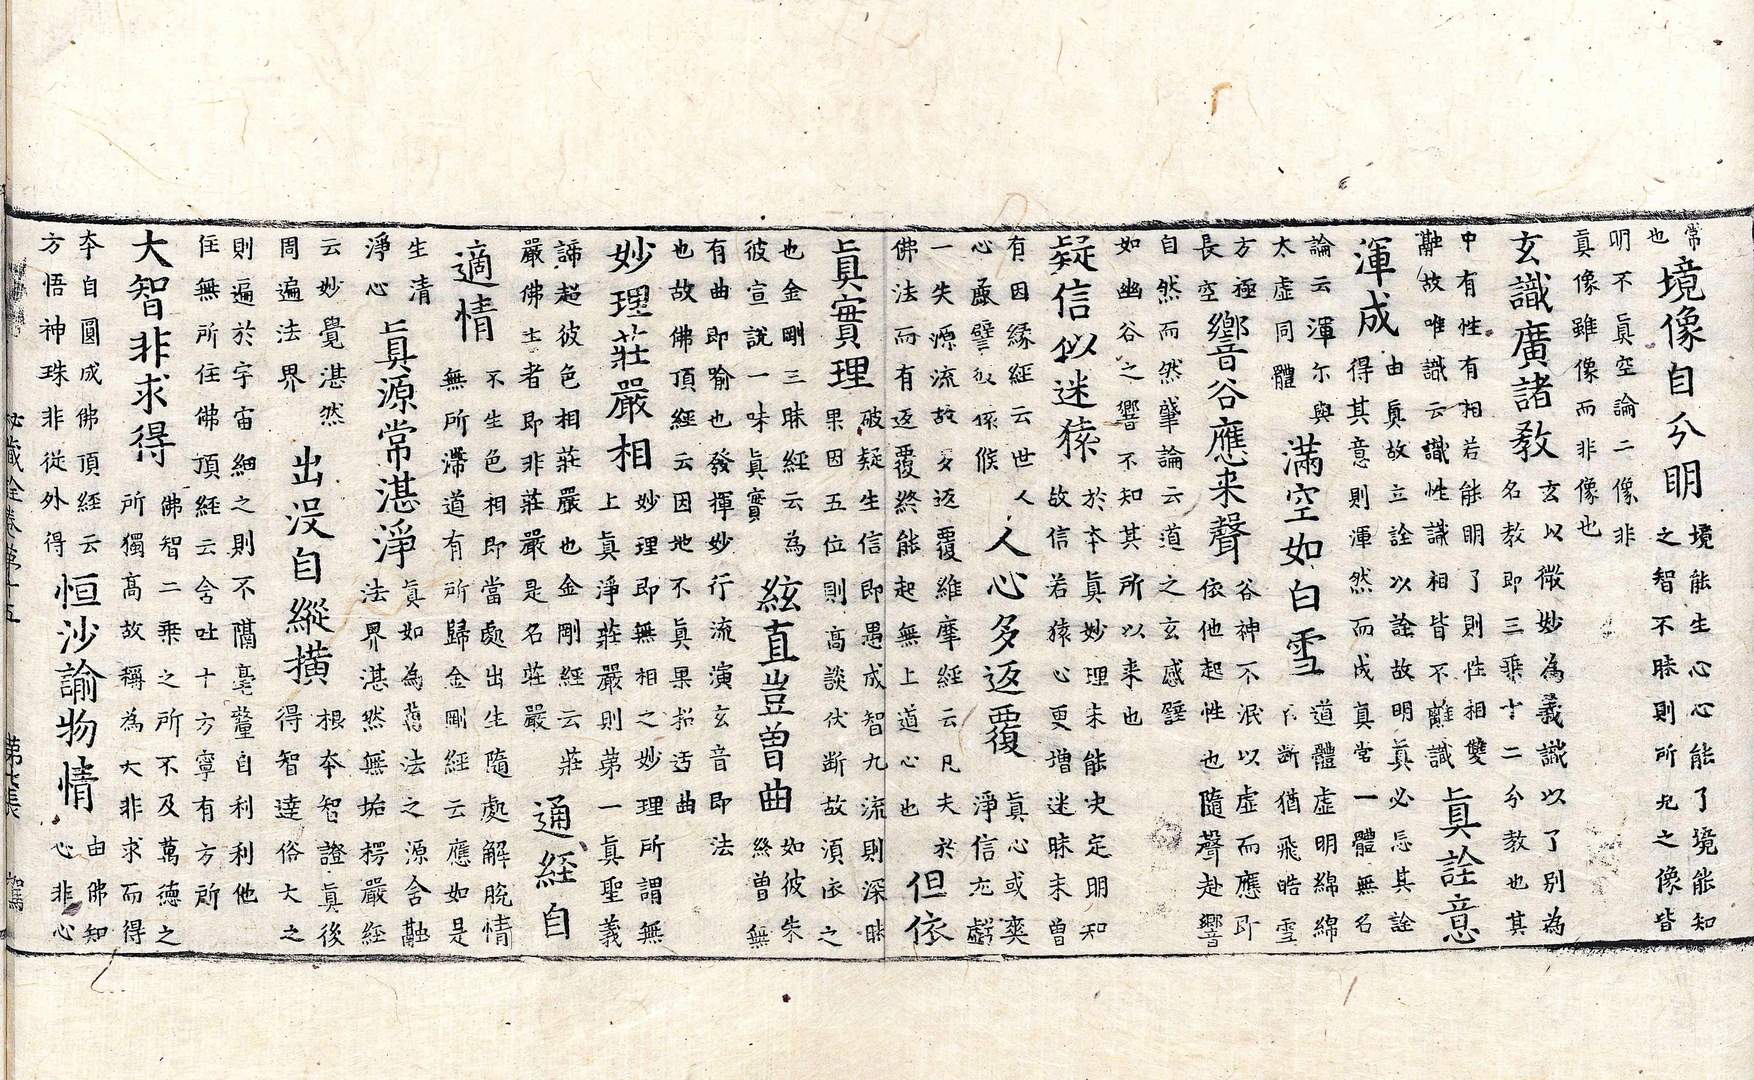 常
也
境像自分明
境能生心心能了境能知
之智不昧則所凡之像皆
明不眞空論二像非
眞像雖像而非像也
玄識廣諸教
玄以微妙為義識以了別為
名教即三乘十二分教也其
中有性有相若能明了則性相雙
融故唯識云識性識相皆不離識
眞詮意
渾成
由真故立詮以詮故明真必忘其詮
得其意則渾然而成真常一體無名
論云渾尔與
太虛同體
滿空如白雪
道體虛明綿綿
断猶飛皓雪
方極
長空
響谷應来聲
谷神不泯以虛而應即
依他起性也隨聲赴響
自然而然肇論云道之玄感
如幽谷之響不知其所以来也
疑信似迷猿
於夲真妙理未能决定明知
故信若猿心更増迷昧未曽
有因縁經云世人
心麤譬彼猴
人心多返覆
真心或爽
淨信尤虧
一失源流故多返覆維摩經云凡夫於
佛法而有返覆終能起無上道心也
但依
眞實理
破疑生信即愚成智九流則深昧
果因五位則高談伏断故須依之
也金剛三昧經云為
彼宣説一味眞實
絃直豈曽曲
如彼朱
絲曽無
有曲即喻也發揮妙行流演玄音即法
也故佛頂經云因地不眞果招迂曲
妙理莊嚴相
妙理即無相之妙理所謂無
上真淨莊嚴則第一真聖義
諦超彼色相莊嚴也金剛經云莊
嚴佛生者即非莊嚴是名莊嚴
通經自
適情
不生色相即當處出生隨處解脫情
無所滯道有所歸金剛經云應如是
生清
淨心
眞源常湛淨
真如為萬法之源含融
法界湛然無垢楞嚴經
云妙覺湛然
周遍法界
出没自縱撗
根夲智證真後
得智逹俗大之
則遍於宇宙細之則不隔毫釐自利利他
住無所住佛頂經云含吐十方寧有方所
大智非求得
佛智二乘之所不及萬德之
所獨髙故稱為大非求而得
夲自圓成佛頂經云
方悟神珠非從外得
恒沙諭物情
由佛知
心非心
秘藏詮卷第十五 第七張